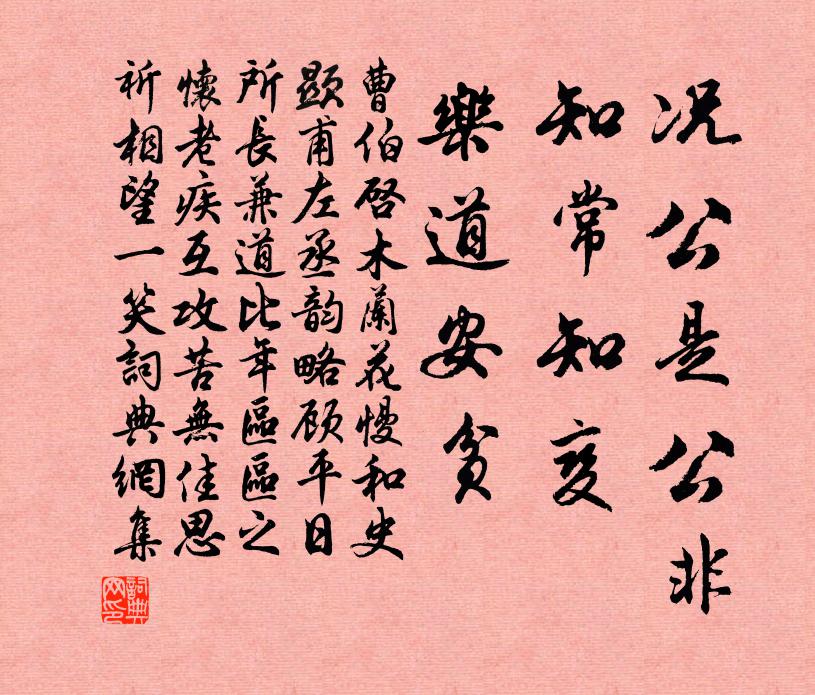 况公是公非
知常知变
樂道安貧
曹伯啓木蘭花慢和史
顯甫左丞韵略顾平日
所長兼道比年區區之
懷老疾互攻苦無佳思
祈相望一笑詞典網集
詞典网印